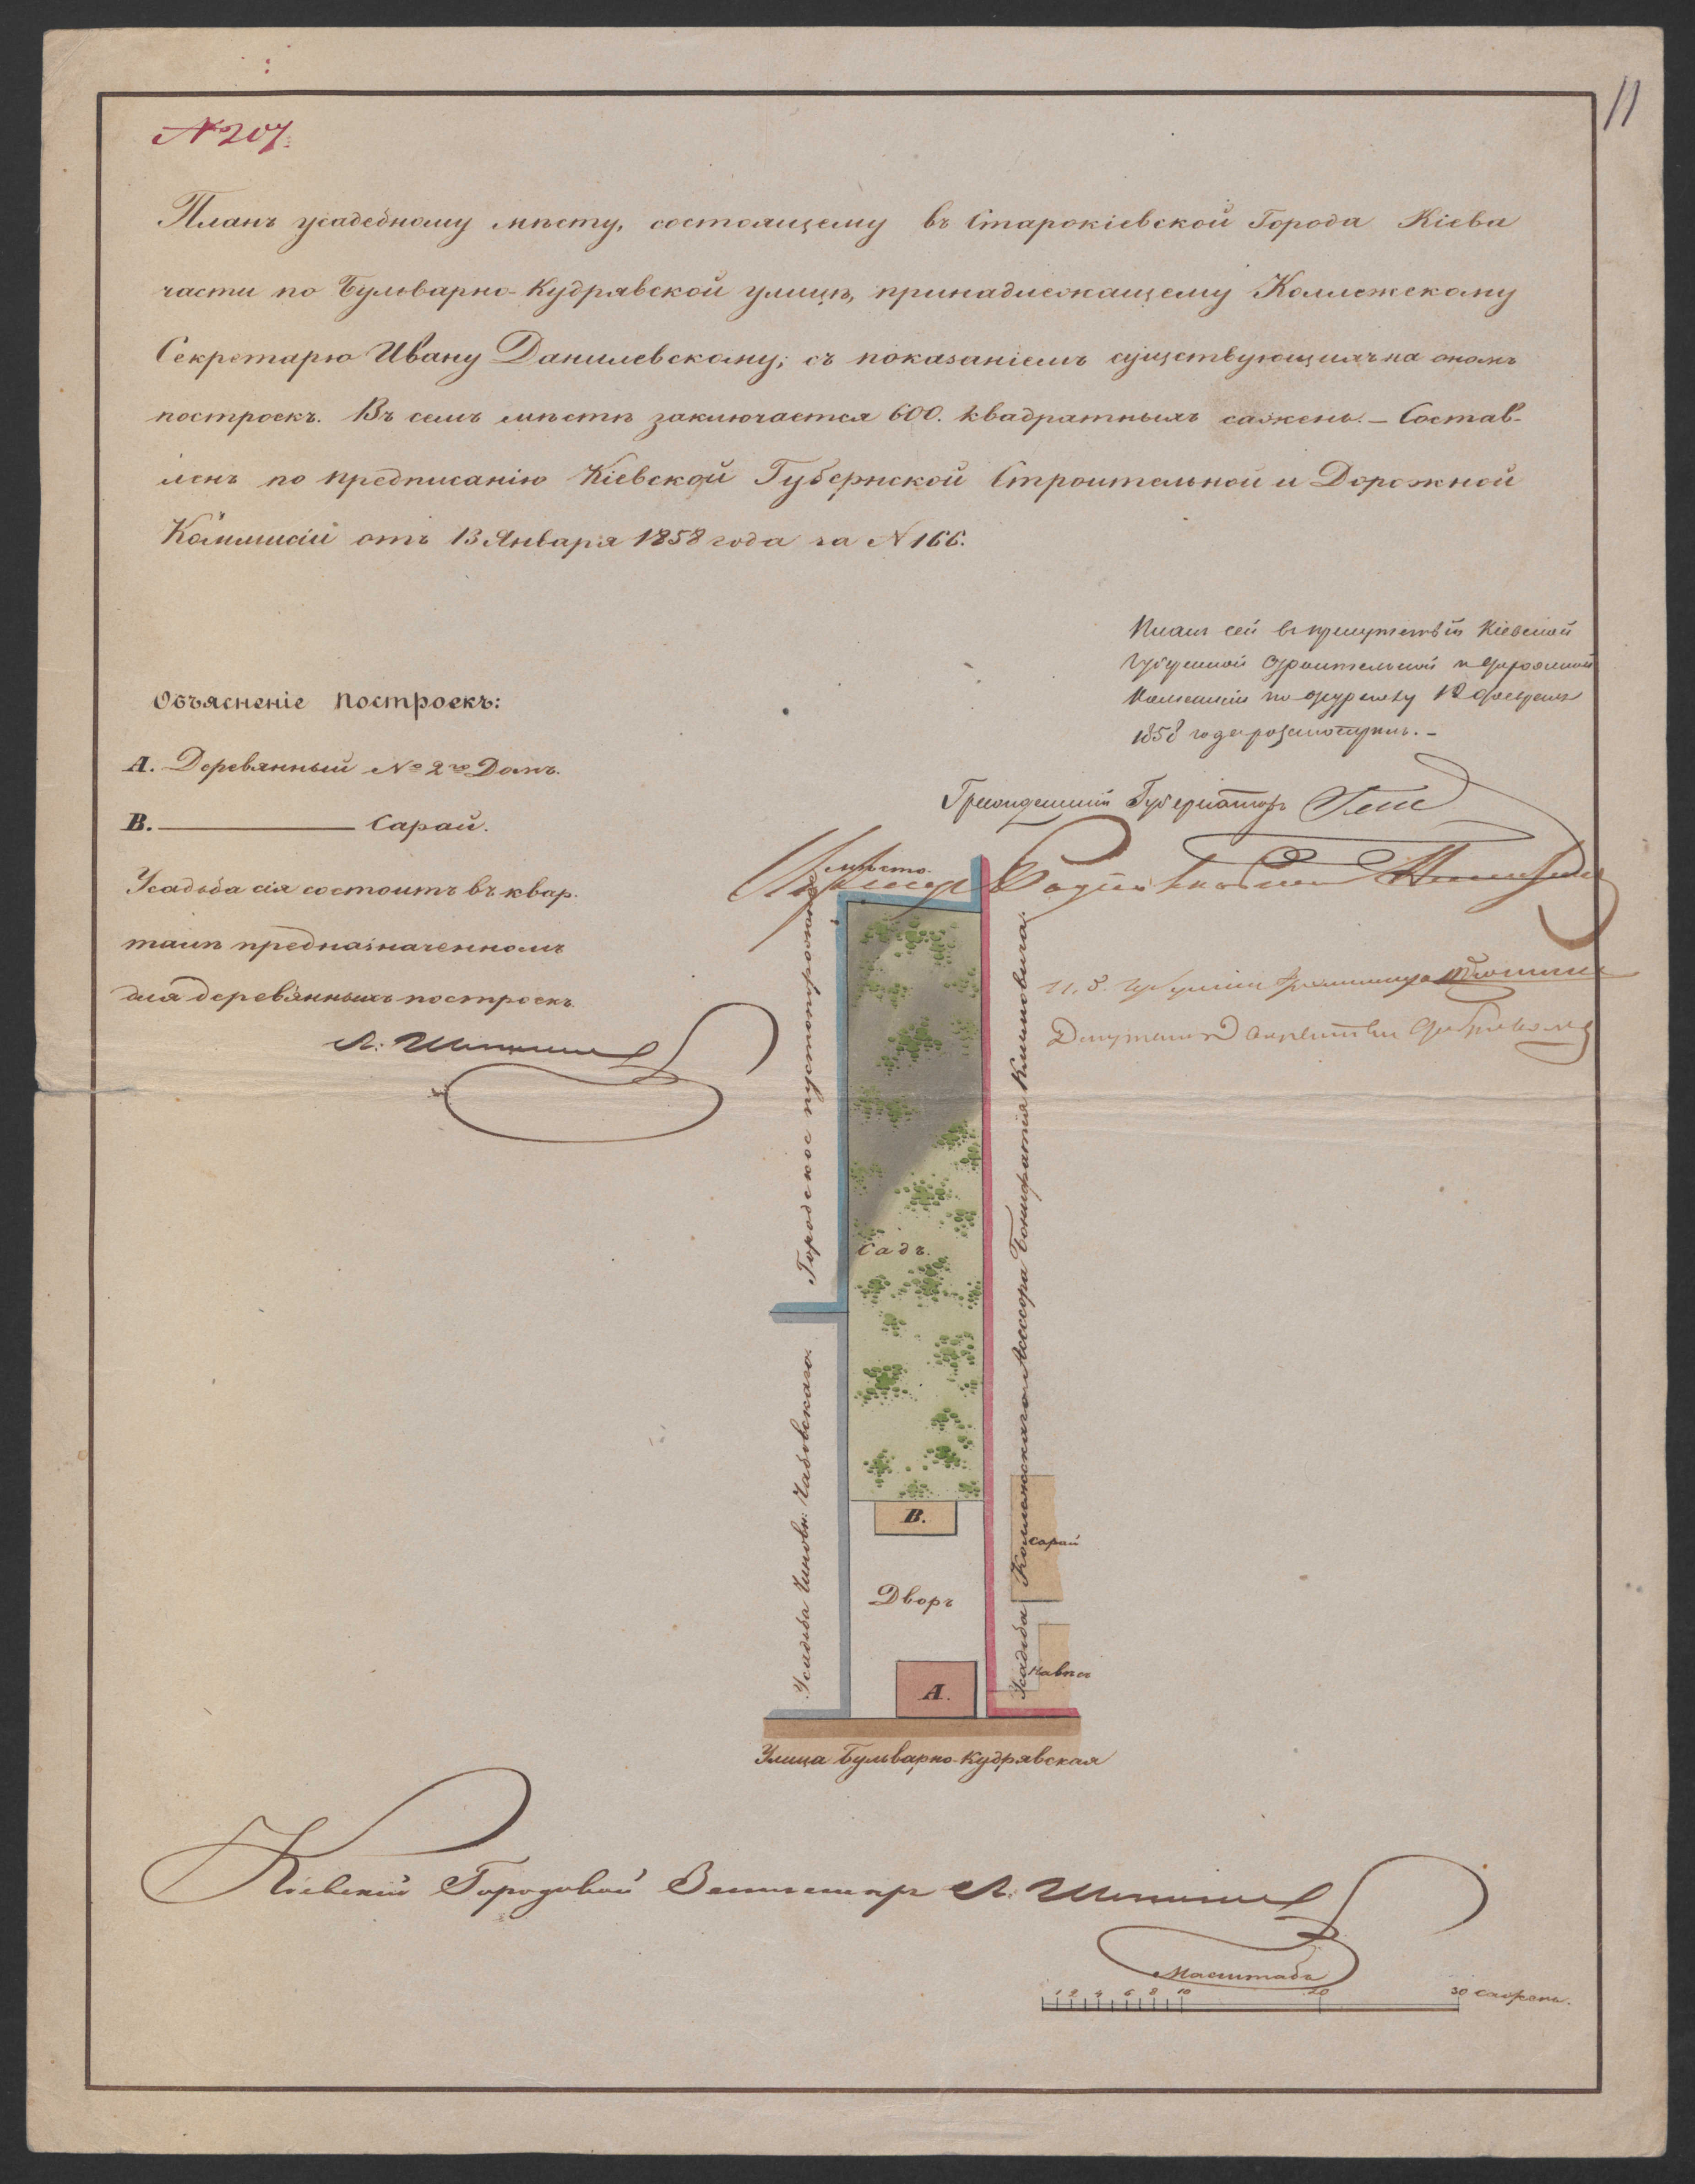 11
№ 207.
Планъ усадебному мѣсту, состоящему въ Старокіевской Города Кіева
части по Бульварно-Кудрявской улицѣ, принадлежащему Коллежскому
Секретарю Ивану Данилевскому; съ показаніемъ существующихъ на ономъ
построекъ. Въ семъ мѣстѣ заключается 600. квадратныхъ сажень. — Состав-
ленъ по предписанію Кіевской Губернской Строительной и Дорожной
Коммисіи отъ 13 Января 1858 года за № 166.
Планъ сей въ присутствіи Кіевской
Губернской Строительной и Дорожной
Комисіи по журналу 12 февраля
1858 года разсмотрѣнъ. —
Объясненіе построекъ:
А. Деревянный № 2го Домъ.
В. ———— Сарай.
Усадьба сія состоитъ въ квар-
талѣ предназначенномъ
для деревянныхъ построекъ.
Гражданскій Губернаторъ
Городское пустопорожнее
мѣсто.
Усадьба Чиновн: Чабовскаго.
Усадьба Коллежскаго Ассесора Бонифатія Климовича.
Садъ.
В.
Сарай
Дворъ
А.
Навѣсъ
Улица Бульварно-Кудрявская
Кіевскій Городовой Землемѣръ Л.
Масштабъ
1 2 4 6 8 10 20 30 сажень.